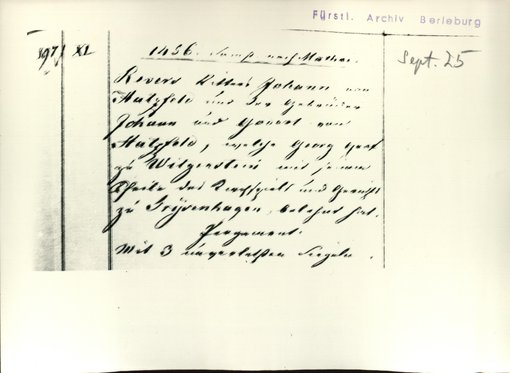 Fürstl. Archiv Berleburg
197/ XI.
Sept. 25
1456. Samst. nach Mathei.
Revers Ritters Johann von
Hatzfeld und der Gebrüder
Johann und Godert von
Hatzfeld, welche Georg Graf
zu Witgenstein mit seinem
Theile des Kirchspiels und Gerichts
zu Grijsenhagen, belehnt hat.
Pergament.
Mit 3 unverletzten Siegeln.